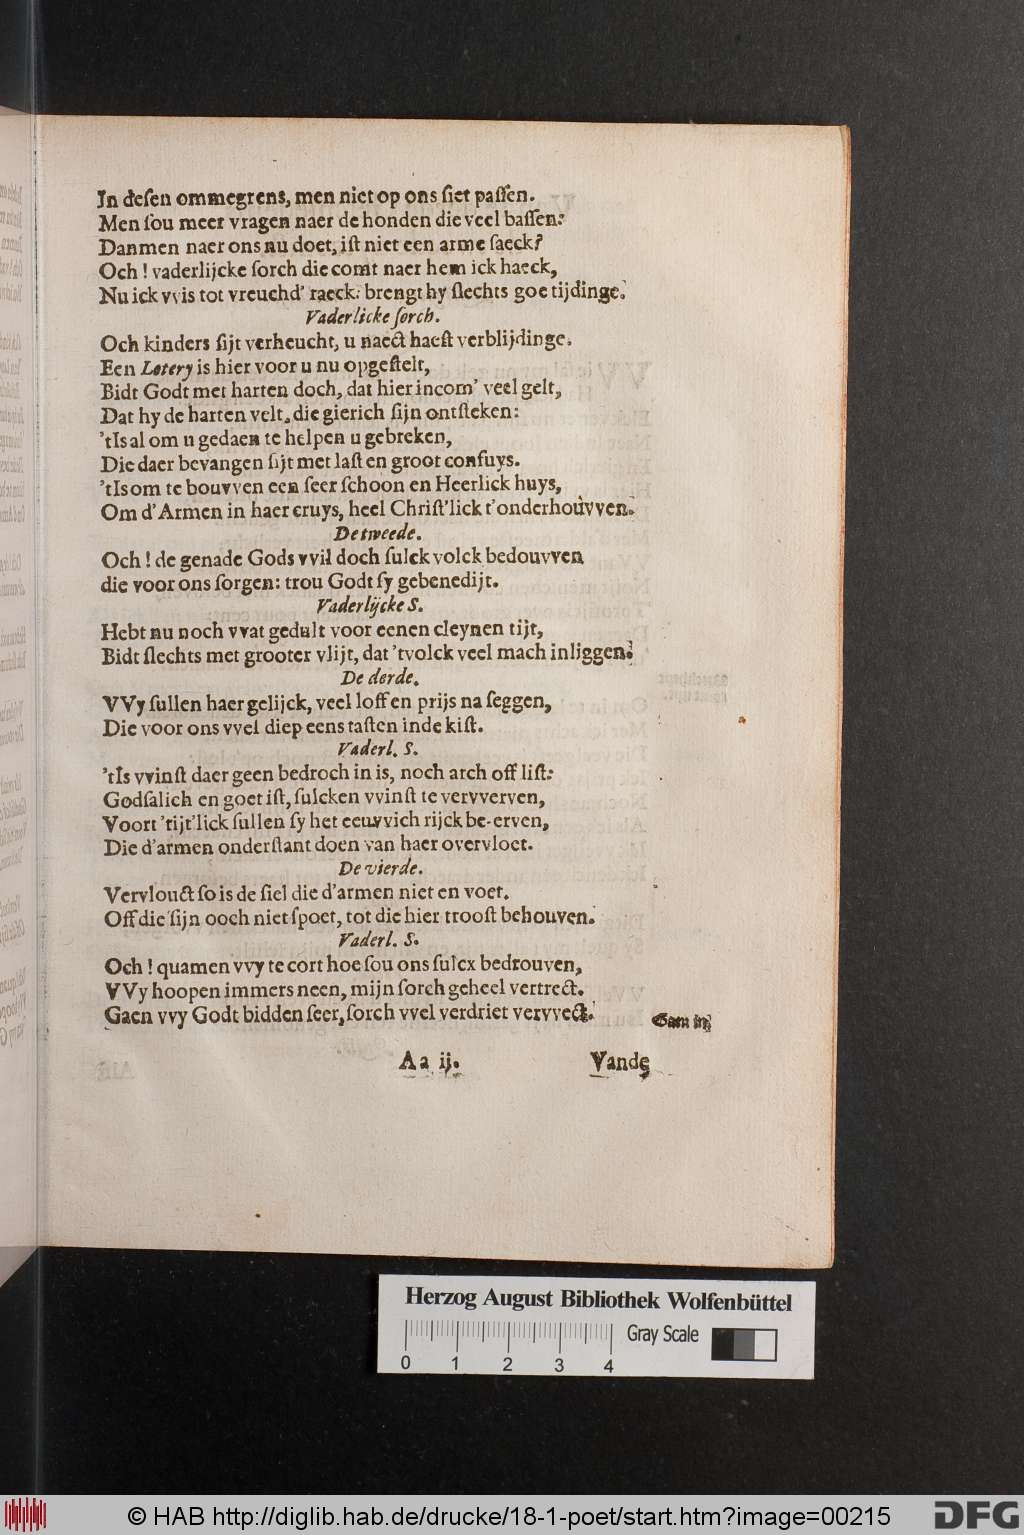 In desen ommegrens, men niet op ons siet passen.
Men sou meer vragen naer de honden die veel bassen:
Danmen naer ons nu doet, ist niet een arme saeck?
Och! vaderlijcke sorch die comt naer hem ick haeck,
Nu ick vvis tot vreuchd' raeck: brengt hy slechts goe tijdinge.
Vaderlicke sorch.
Och kinders sijt verheucht, u naect haest verblijdinge.
Een Lotery is hier voor u nu opgestelt,
Bidt Godt met harten doch, dat hier incom' veel gelt,
Dat hy de harten velt, die gierich sijn ontsteken:
'tIs al om u gedaen te helpen u gebreken,
Die daer bevangen sijt met last en groot confuys.
'tIs om te bouvven een seer schoon en Heerlick huys,
Om d'Armen in haer cruys, heel Christ'lick t'onderhouvven.
De tweede.
Och! de genade Gods vvil doch sulck volck bedouvven
die voor ons sorgen: trou Godt sy gebenedijt.
Vaderlijcke S.
Hebt nu noch vvat gedult voor eenen cleynen tijt,
Bidt slechts met grooter vlijt, dat 'tvolck veel mach inliggen.
De derde.
VVy sullen haer gelijck, veel loff en prijs na seggen,
Die voor ons vvel diep eens tasten inde kist.
Vaderl. S.
'tIs vvinst daer geen bedroch in is, noch arch off list:
Godsalich en goet ist, sulcken vvinst te vervverven,
Voort 'tijt'lick sullen sy het eeuvvich rijck be-erven,
Die d'armen onderstant doen van haer overvloet.
De vierde.
Vervlouct so is de siel die d'armen niet en voet.
Off die sijn ooch niet spoet, tot die hier troost behouven.
Vaderl. S.
Och! quamen vvy te cort hoe sou ons sulcx bedrouven,
VVy hoopen immers neen, mijn sorch geheel vertrect.
Gaen vvy Godt bidden seer, sorch vvel verdriet vervvect.
Gaen in
Aa ij.
Vande
Herzog August Bibliothek Wolfenbüttel
Gray Scale
0 1 2 3 4
© HAB http://diglib.hab.de/drucke/18-1-poet/start.htm?image=00215
DFG